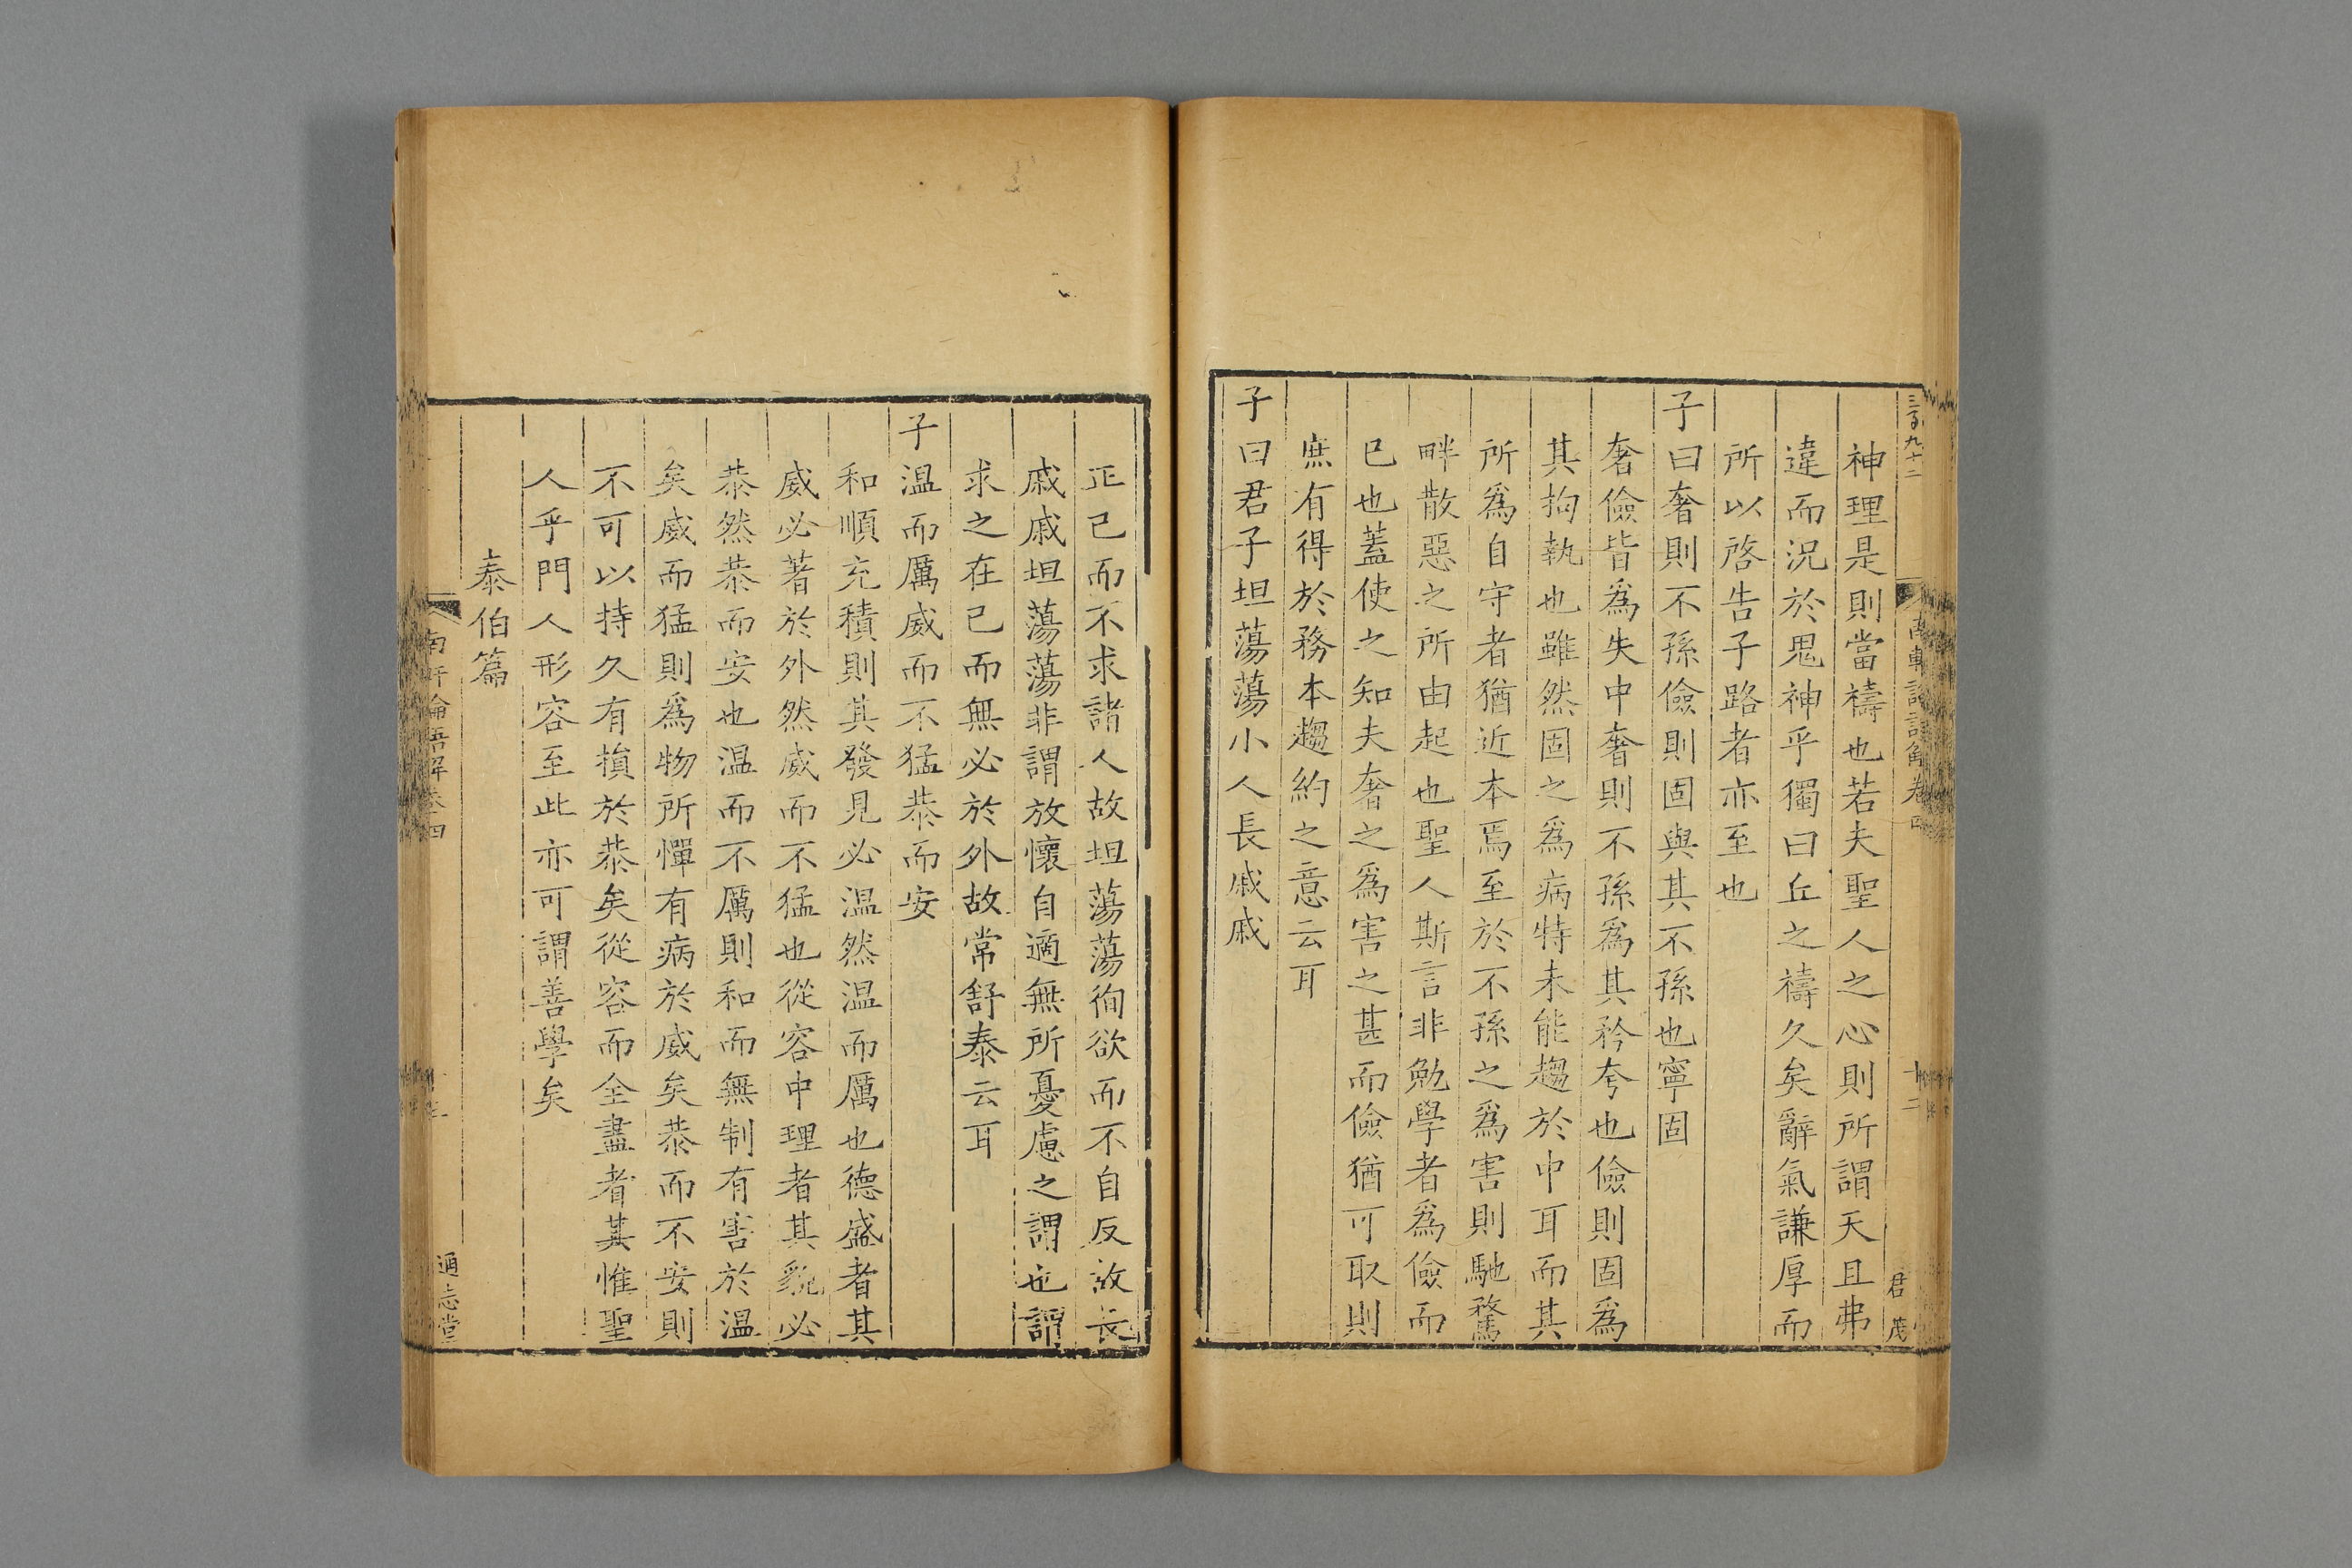 三百九十二
南軒論語解卷四
十二
君茂
神理是則當禱也若夫聖人之心則所謂天且弗
違而況於鬼神乎獨曰丘之禱久矣辭氣謙厚而
所以啓告子路者亦至也
子曰奢則不孫儉則固與其不孫也寧固
奢儉皆爲失中奢則不孫爲其矜夸也儉則固爲
其拘執也雖然固之爲病特未能趨於中耳而其
所爲自守者猶近本焉至於不孫之爲害則馳騖
畔散惡之所由起也聖人斯言非勉學者爲儉而
已也蓋使之知夫奢之爲害之甚而儉猶可取則
庶有得於務本趨約之意云耳
子曰君子坦蕩蕩小人長戚戚
正己而不求諸人故坦蕩蕩徇欲而不自反故長
戚戚坦蕩蕩非謂放懷自適無所憂慮之謂也謂
求之在己而無必於外故常舒泰云耳
子温而厲威而不猛恭而安
和順充積則其發見必温然温而厲也德盛者其
威必著於外然威而不猛也從容中理者其貌必
恭然恭而安也温而不厲則和而無制有害於温
矣威而猛則爲物所憚有病於威矣恭而不安則
不可以持久有損於恭矣從容而全盡者其惟聖
人乎門人形容至此亦可謂善學矣
泰伯篇
南軒論語解卷四
通志堂